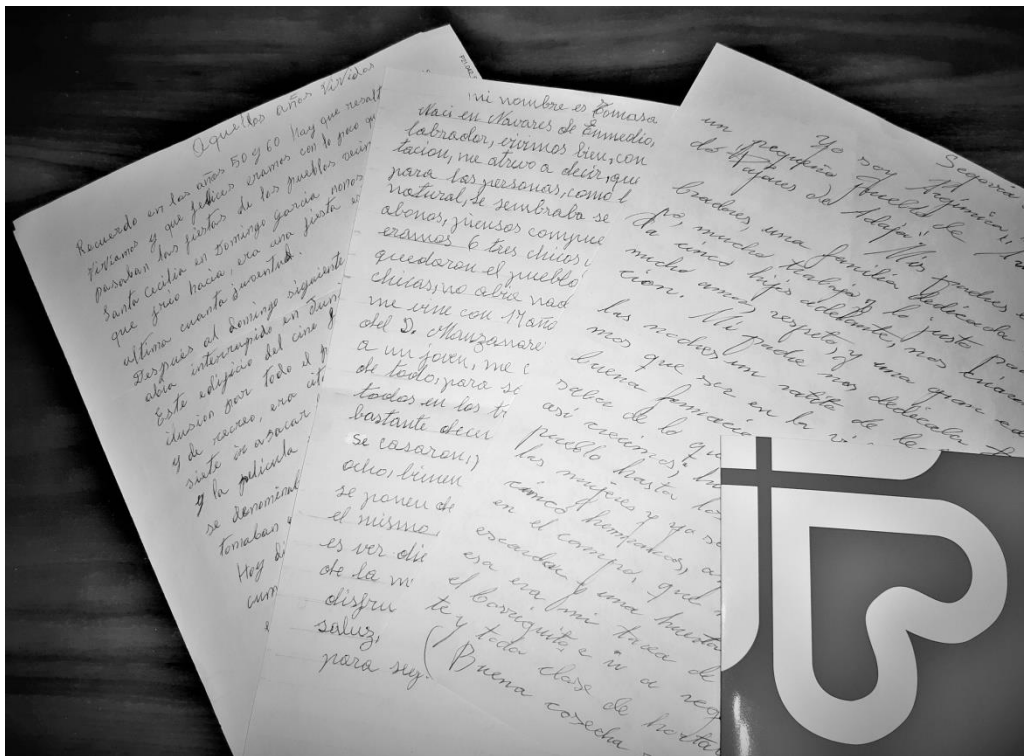 Aquellos años vividos
Recuerdo en los años 50 y 60 Hay que resalt
vivíamos y que felices eramos con lo poco qu
pasaban las fiestas de los pueblos vecin
Santa Cecilia en Domingo García nonos
que frio hacia, era una fiesta
ultima cuanta juventud.
Después al domingo siguiente
abia interrupido en
Este edificio del cine
ilusion por todo el
y de recreo, era
siete ir a sacar
y la película
se denominal
tomaban
Hoy di
cum
mi nombre es Tomasa
Naci en Navares de Enmedio,
labrador, vivimos bien, con
tacion, me atrevo a decir, que
para las personas, como
natural, se sembraba se
abonos, piensos compue
eramos 6 tres chicos,
quedaron el pueblo
chicas, no abia nad
me vine con 17 año
del D. Manzanare
a un joven, me
de todo, para se
todos en los tr
bastante decer
se casaron,
ocho, bienen
se ponen de
el mismo,
es ver
de la
disfru
saluz,
para seg
Segovia
Yo soy Higinia,
un pequeño pueblo de
do Pajares de Adaja" Mis padres
bradores, una familia dedicada
po, mucho trabajo y lo justo par
da cinco hijos adelante, nos
mucho amor, respeto, y una gran
ción. Mi padre nos dedicaba
las noches un ratito de
mos que ser en la vi
buena
saber de lo que
así crecimos,
pueblo hasta los
las mujeres y yo se
cinco hermanos,
en el campo, que
escardar y una huerta
esa era mi tarea de
el borriquito, e ir a reg
te y toda clase de horta
(Buena cosecha